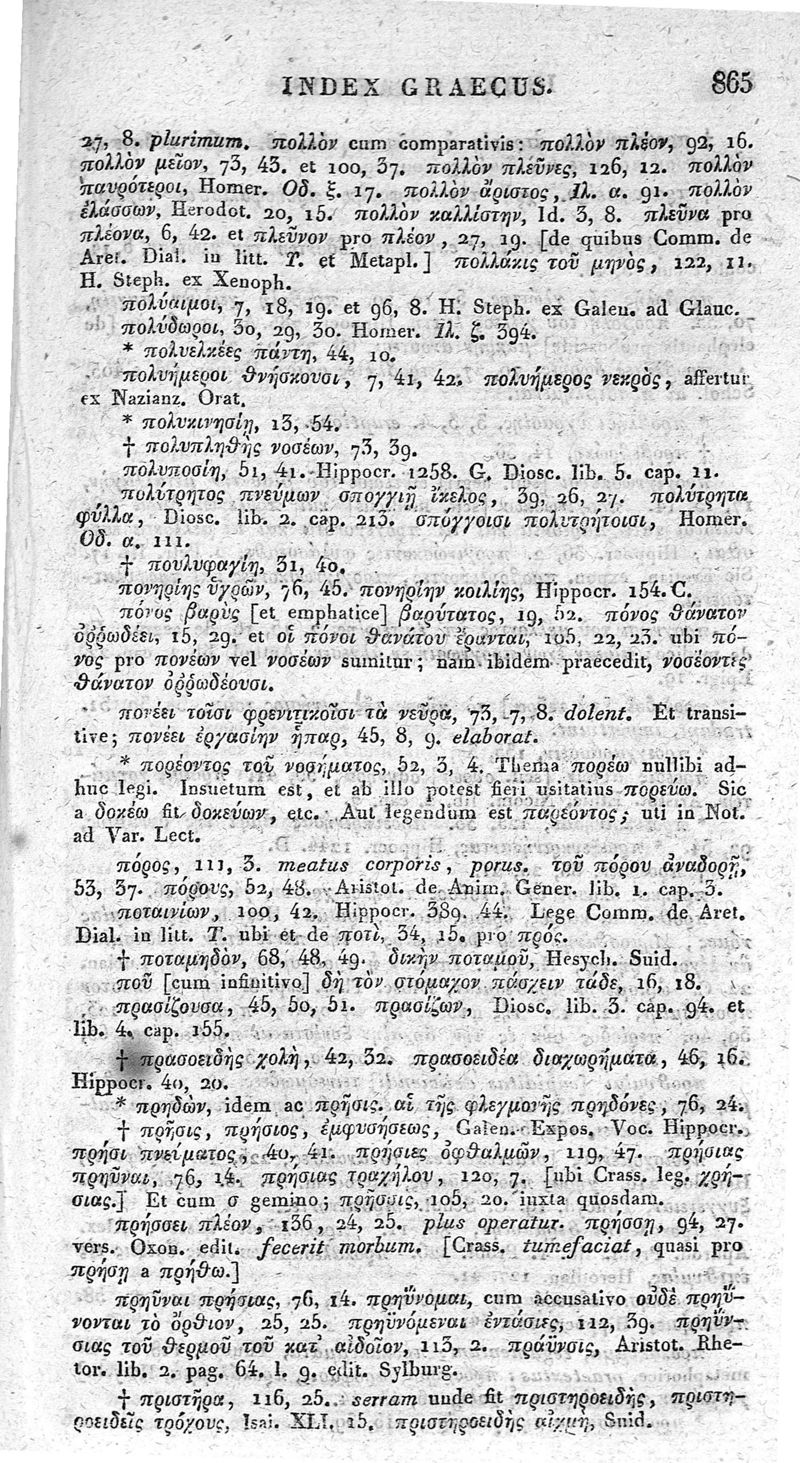 INDEX GRAECUS. 865
27, 8. plurimum. πολλὸν cum comparativis: πολλὸν πλέον, 92, 16.
πολλὸν μεῖον, 73, 43. et 100, 37. πολλὸν πλεῦνες, 126, 12. πολλὸν
παυρότεροι, Homer. Οδ. ξ. 17. πολλὸν ἄριστος, Ιλ. α. 91. πολλὸν
ἐλάσσων, Herodot. 20, 15. πολλὸν καλλίστην, Id. 3, 8. πλεῦνα pro
πλέονα, 6, 42. et πλεῦνον pro πλέον, 27, 19. [de quibus Comm. de
Aret. Dial. in litt. T. et Metapl.] πολλάκις τοῦ μηνὸς, 122, 11.
H. Steph. ex Xenoph.
πολύαιμοι, 7, 18, 19. et 96, 8. H. Steph. ex Galen. ad Glauc.
πολύδωροι, 30, 29, 30. Homer. Ιλ. ζ. 394.
* πολυελκέες πάντη, 44, 10.
πολυήμεροι θνήσκουσι, 7, 41, 42. πολυήμερος νεκρὸς, affertur
ex Nazianz. Orat.
* πολυκινησίη, 13, 54.
† πολυπληθὴς νοσέων, 73, 39.
πολυποσίη, 51, 41. Hippocr. 1258. G. Diosc. lib. 5. cap. 11.
πολύτρητος πνεύμων σπογγιῇ ἴκελος, 39, 26, 27. πολύτρητα
φύλλα, Diosc. lib. 2. cap. 213. σπόγγοισι πολυτρήτοισι, Homer.
Οδ. α. 111.
† πουλυφαγίη, 31, 40.
πονηρίης ὑγρῶν, 76, 45. πονηρίην κοιλίης, Hippocr. 154. C.
πόνος βαρὺς [et emphatice] βαρύτατος, 19, 52. πόνος θάνατον
ὀῤῥωδέει, 15, 29. et οἱ πόνοι θανάτου ἔρανται, 105, 22, 23. ubi πό-
νος pro πονέων vel νοσέων sumitur; nam ibidem praecedit, νοσέοντες
θάνατον ὀῤῥωδέουσι.
πονέει τοῖσι φρενιτικοῖσι τὰ νεῦρα, 73, 7, 8. dolent. Et transi-
tive; πονέει ἐργασίην ἧπαρ, 45, 8, 9. elaborat.
* πορέοντος τοῦ νοσήματος, 52, 3, 4. Thema πορέω nullibi ad-
huc legi. Insuetum est, et ab illo potest fieri usitatius πορεύω. Sic
a δοκέω fit δοκεύων, etc. Aut legendum est παρεόντος; uti in Not.
ad Var. Lect.
πόρος, 111, 3. meatus corporis, porus. τοῦ πόρου ἀναδορῇ,
53, 37. πόρους, 52, 48. Aristot. de Anim. Gener. lib. 1. cap. 3.
ποταινίων, 100, 42. Hippocr. 389. 44. Lege Comm. de Aret.
Dial. in litt. T. ubi et de ποτὶ, 34, 15. pro πρός.
† ποταμηδὸν, 68, 48, 49. δίκην ποταμοῦ, Hesych. Suid.
ποῦ [cum infinitivo] δὴ τὸν στόμαχον πάσχειν τάδε, 16, 18.
πρασίζουσα, 45, 50, 51. πρασίζων, Diosc. lib. 3. cap. 94. et
lib. 4. cap. 155.
† πρασοειδὴς χολὴ, 42, 32. πρασοειδέα διαχωρήματα, 46, 16.
Hippocr. 40, 20.
* πρηδὼν, idem ac πρῆσις. αἱ τῆς φλεγμονῆς πρηδόνες, 76, 24.
† πρῆσις, πρήσιος, ἐμφυσήσεως, Galen. Expos. Voc. Hippocr.
πρήσι πνεύματος, 40, 41. πρήσιες ὀφθαλμῶν, 119, 47. πρήσιας
πρηῧναι, 76, 14. πρήσιας τραχήλου, 120, 7. [ubi Crass. leg. χρή-
σιας.] Et cum σ gemino; πρῆσσις, 105, 20. iuxta quosdam.
πρήσσει πλέον, 136, 24, 25. plus operatur. πρήσσῃ, 94, 27.
vers. Oxon. edit. fecerit morbum. [Crass. tumefaciat, quasi pro
πρήσῃ a πρήθω.]
πρηῧναι πρήσιας, 76, 14. πρηΰνομαι, cum accusativo οὐδὲ πρηΰ-
νονται τὸ ὄρθιον, 25, 25. πρηϋνόμεναι ἐντάσιες, 112, 39. πρηΰν-
σιας τοῦ θερμοῦ τοῦ κατ᾽ αἰδοῖον, 113, 2. πράϋνσις, Aristot. Rhe-
tor. lib. 2. pag. 64. l. 9. edit. Sylburg.
† πριστῆρα, 116, 25. serram unde fit πριστηροειδὴς, πριστη-
ροειδεῖς τρόχους, Isai. XLI. 15. πριστηροειδὴς αἰχμὴ, Suid.